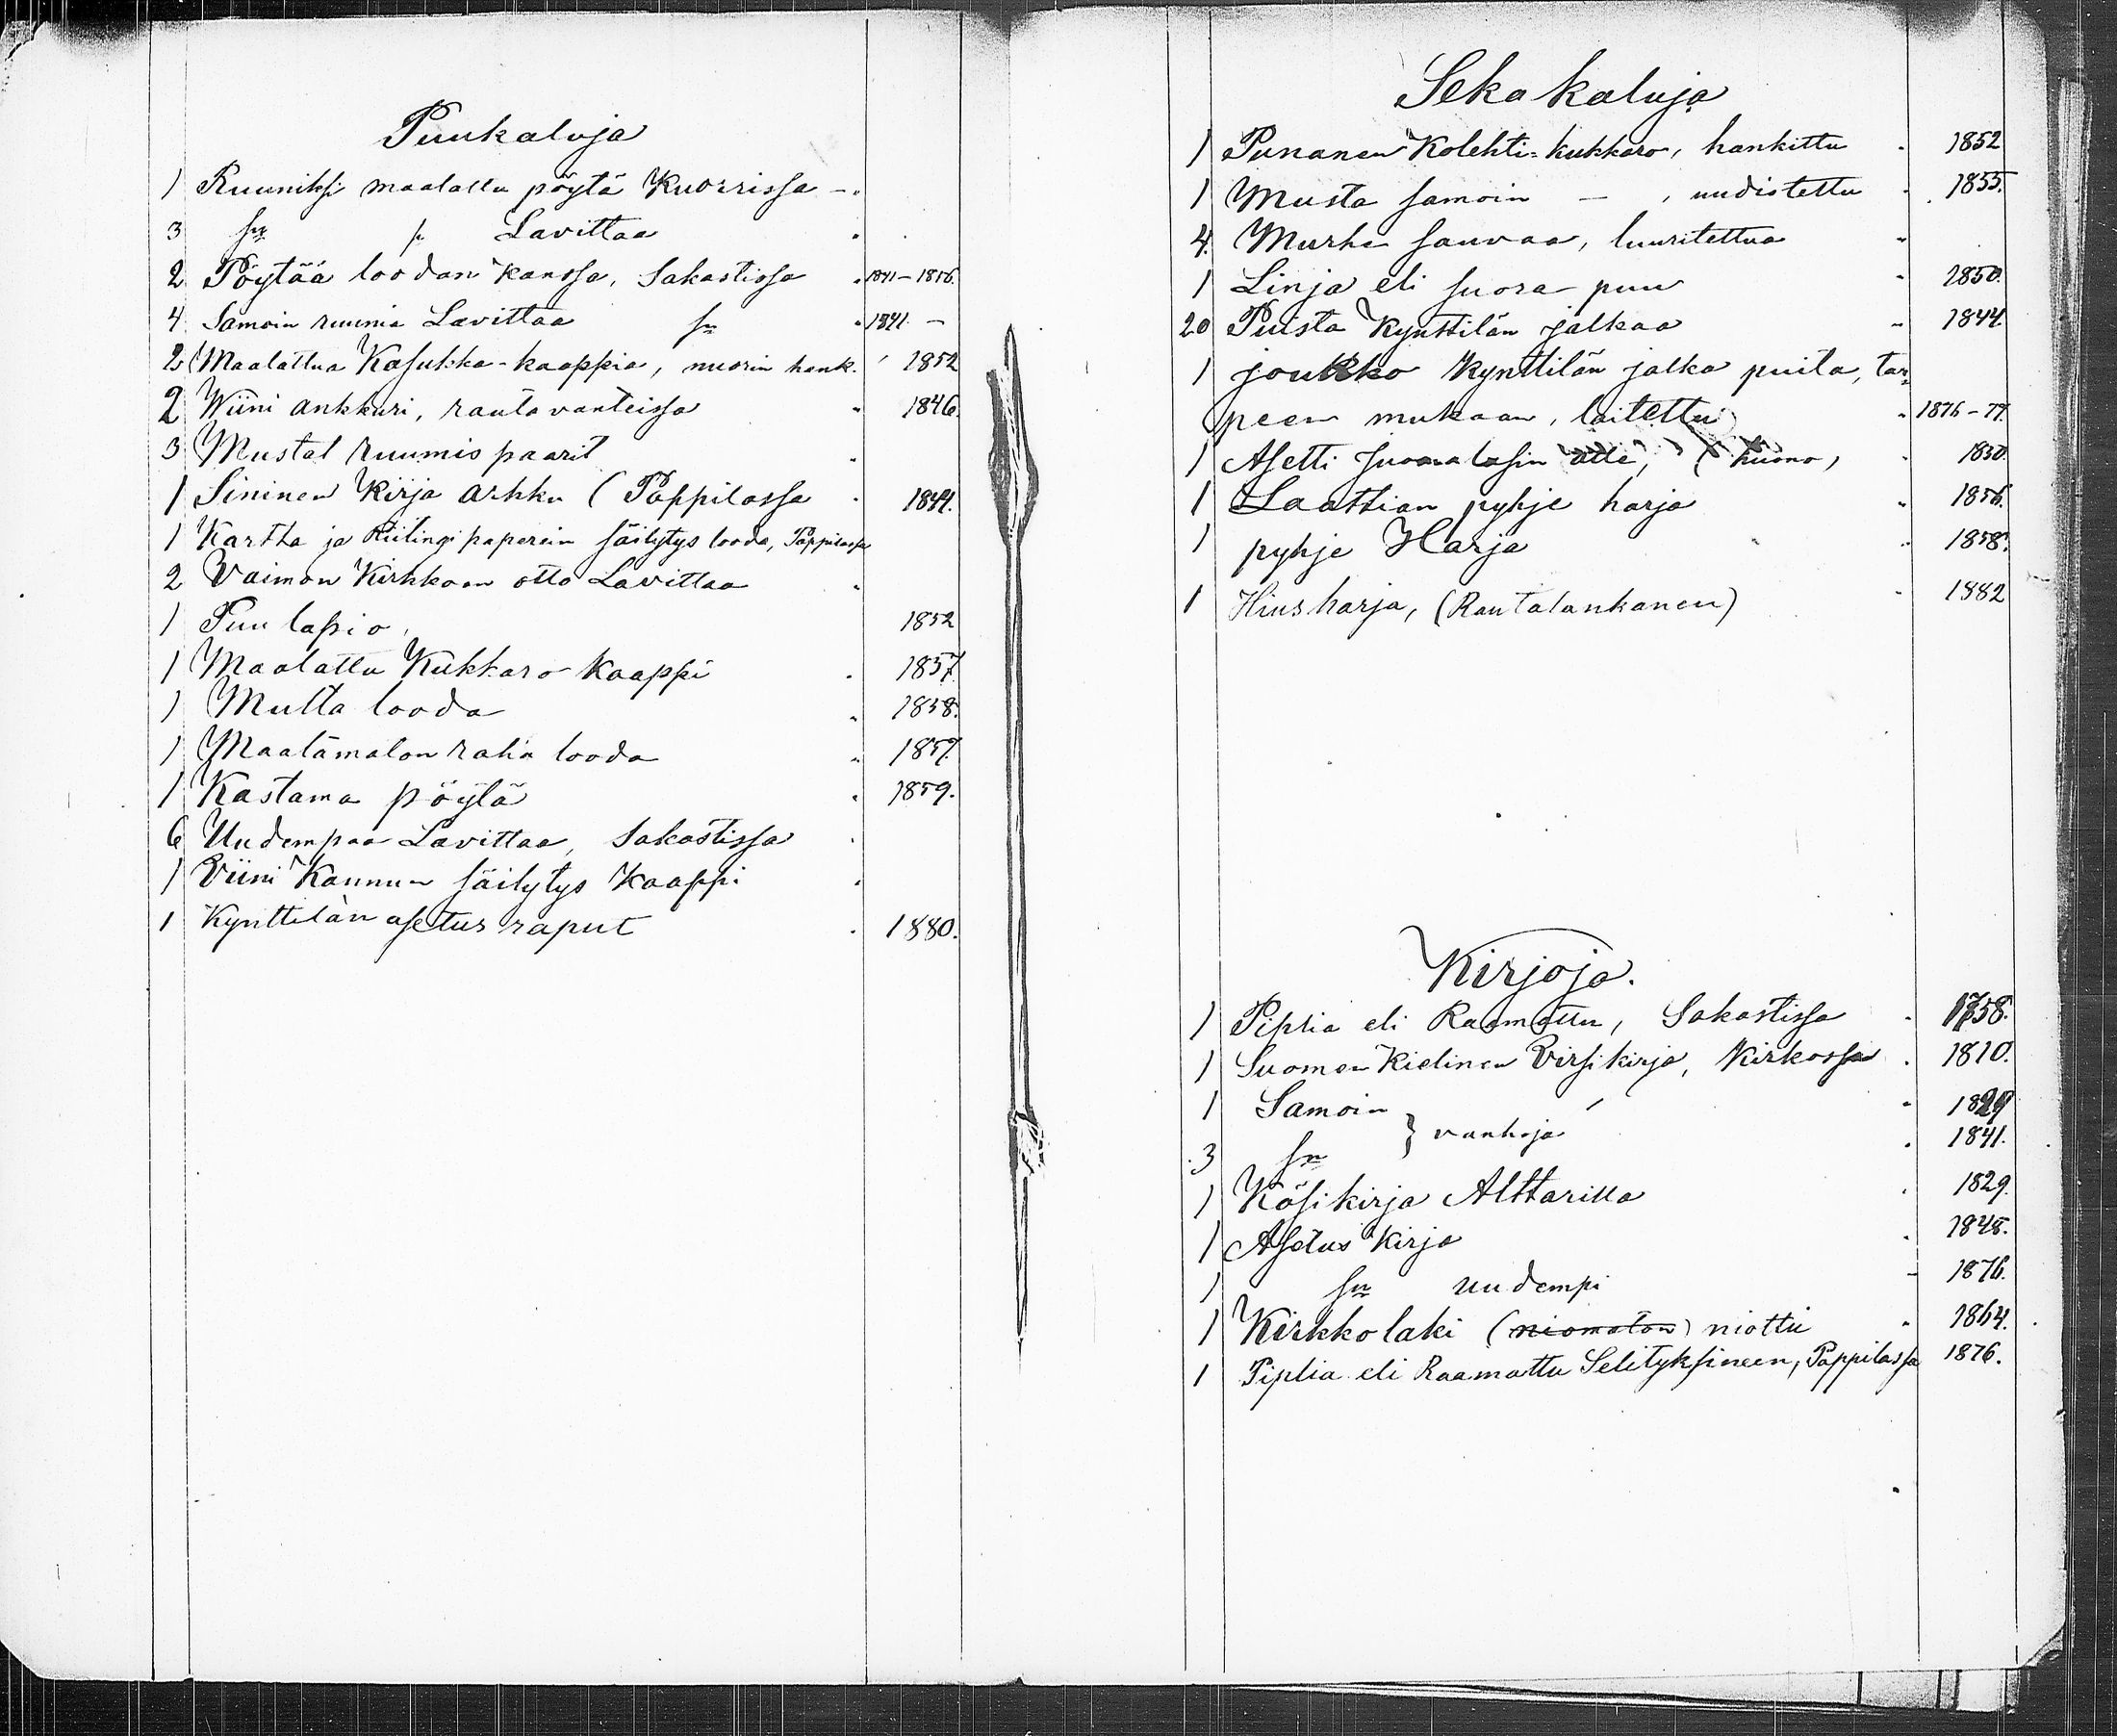 Puukaluja
1 Ruuniksi maalattu pöytä Kuorissa -.
3 sn s. Lavittaa
2 Pöytää loodan kanssa, Sakastissa 1841-1856.
4. Samoin ruunia Lavittaa sn 1841. -
2 Maalattua Kasukka-kaappia, nuorin hank. 1852
2 Wiini ankkuri, rautavanteissa 1846.
3 Mustat ruumis paarit
1 Sininen Kirja arkku (Pappilassa 1844.
1 Kartta ja Riitingi paperein säilytys looda, Pappilassa
2 Vaimon Kirkkoon otto Lavittaa
1 Puu lapio, 1852
1 Maalattu Kukkaro Kaappi 1857.
1 Multa looda 1858.
1 Maatämaton raha looda 1857.
1 Kastama pöytä 1859.
6 Uudempaa Lavittaa, Sakastissa
1 Viini Kannun säilytys Kaappi
1 Kynttilän asetus raput 1880.
Seka kaluja
1 Punanen Kolehti-kukkaro, hankittu 1852
1 Musta samoin - , uudistettu 1855.
4. Murhe sauvaa, luuritettua
1 Linja eli suora puu 1850.
20 Puista Kynttilän jalkaa 1844.
1 joukko Kynttilän jalka puita, tar-
peen mukaan, laitettu 1876-77.
1 Asetti alle, (huono, 1830.
1 Laattian pyhje harja 1856.
1 pyhje Harja 1858.
1 Hius harja, (Rautalankanen) 1882
Kirjoja.
1 Piplia eli Raamattu, Sakastissa 1758.
1 Suomen Kielinen Virsikirja, Kirkossa 1810.
1 Samoin 1829
} vanhoja
3 sn 1841.
1 Käsikirja Alttarilla 1829.
1 Asetus Kirja 1848.
1 sn uudempi 1876.
1 Kirkkolaki (niomaton) niottu 1864.
1 Piplia eli Raamattu Selityksineen, Pappilassa 1876.